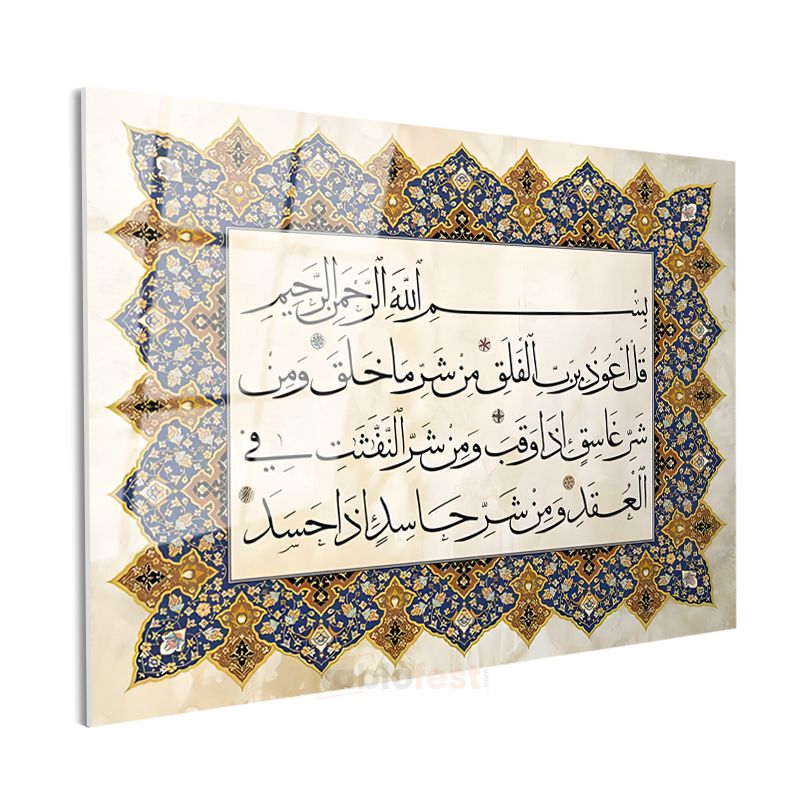 بِسْمِ اللَّهِ الرَّحْمَنِ الرَّحِيمِ
قُلْ أَعُوذُ بِرَبِّ الْفَلَقِ مِنْ شَرِّ مَا خَلَقَ وَمِنْ
شَرِّ غَاسِقٍ إِذَا وَقَبَ وَمِنْ شَرِّ النَّفَّثَتِ فِي
الْعُقَدِ وَمِنْ شَرِّ حَاسِدٍ إِذَا حَسَدَ
tablofest.com